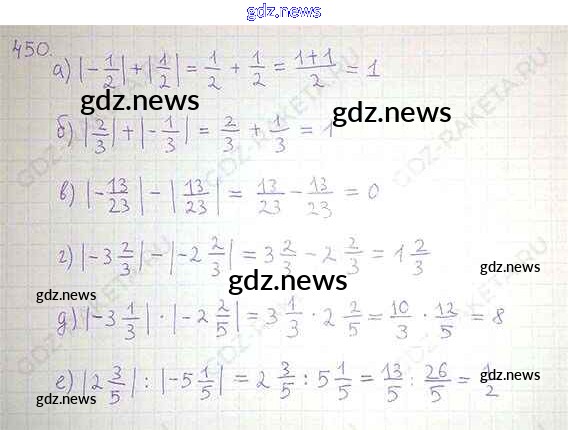 gdz.news
450.
а) |-1/2| + |1/2| = 1/2 + 1/2 = (1+1)/2 = 1
gdz.news gdz.news
б) |2/3| + |-1/3| = 2/3 + 1/3 = 1
в) |-13/23| - |13/23| = 13/23 - 13/23 = 0
г) |-3 2/3| - |-2 2/3| = 3 2/3 - 2 2/3 = 1 2/3
gdz.news gdz.news gdz.news
д) |-3 1/3| · |-2 2/5| = 3 1/3 · 2 2/5 = 10/3 · 12/5 = 8
е) |2 3/5| : |-5 1/5| = 2 3/5 : 5 1/5 = 13/5 : 26/5 = 1/2
gdz.news gdz.news gdz.news
GDZ-RAKETA.RU
GDZ-RAKETA.RU